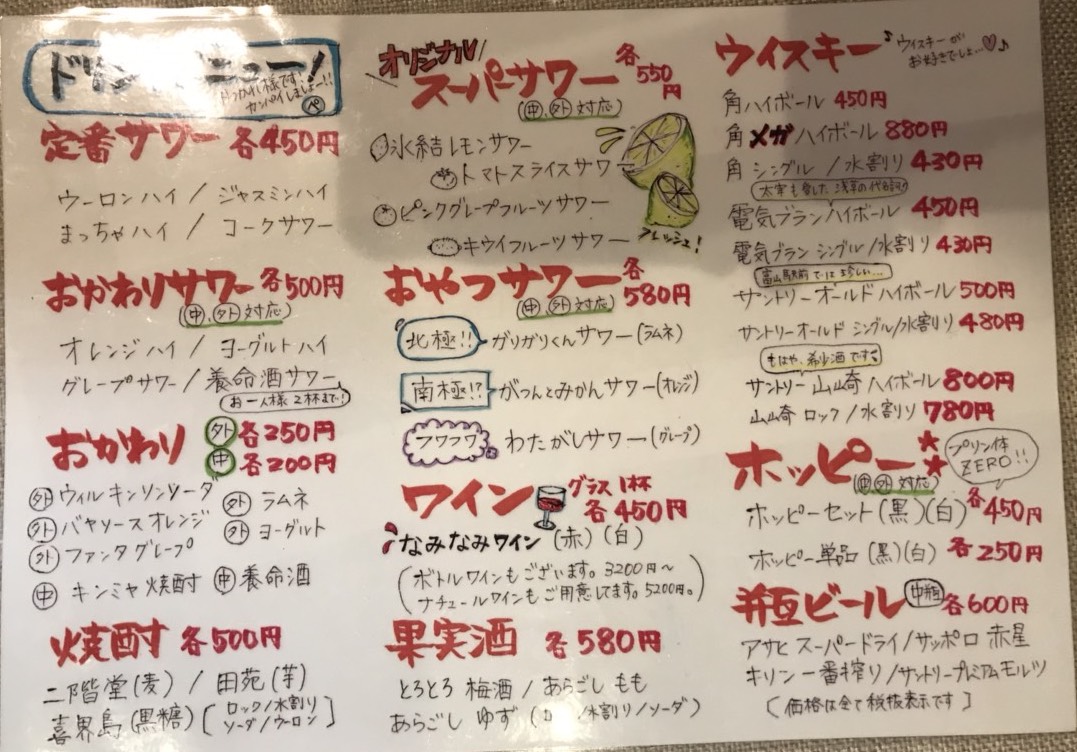 ドリン ニュー!
お つかれ様です!
カンパイしましょー!!
ペ
定番サワー 各450円
ウーロンハイ / ジャスミンハイ
まっちゃハイ / コークサワー
おかわりサワー 各500円
(中、外 対応)
オレンジハイ / ヨーグルトハイ
グレープサワー / 養命酒サワー
お一人様 2杯まで!
おかわり 外 各250円
中 各200円
外 ウィルキンソンソーダ 外 ラムネ
外 バヤリース オレンジ 外 ヨーグルト
外 ファンタグレープ
中 キンミヤ焼酎 中 養命酒
焼酎 各500円
二階堂(麦) / 田苑(芋)
喜界島(黒糖) [ロック/水割り
ソーダ/ウーロン]
オリジナル
スーパーサワー 各550円
(中、外 対応)
氷結レモンサワー
トマトスライスサワー
ピンクグレープフルーツサワー
キウイフルーツサワー
フレッシュ!
おやつサワー 各580円
(中、外 対応)
北極!! ガリガリくんサワー(ラムネ)
南極!? がつんとみかんサワー(オレンジ)
フワフワ わたがしサワー(グレープ)
ワイン グラス1杯 各450円
なみなみワイン (赤)(白)
(ボトルワインもございます。3200円~
ナチュールワインもご用意してます。5200円。)
果実酒 各580円
とろとろ 梅酒 / あらごし もも
あらごし ゆず ( /水割り/ソーダ)
ウイスキー♪ ウィスキーが
お好きでしょ…♡♪
角ハイボール 450円
角メガハイボール 880円
角 シングル / 水割り 430円
太宰も愛した 浅草の
電気ブランハイボール 450円
電気ブラン シングル/水割り 430円
富山駅前では珍しい…
サントリーオールドハイボール 500円
サントリーオールド シングル/水割り 480円
もはや、希少酒です
サントリー 山崎 ハイボール 800円
山崎 ロック / 水割り 780円
ホッピー★★ プリン体
ZERO!!
(中外 対応)
ホッピーセット(黒)(白) 各450円
ホッピー単品(黒)(白) 各250円
瓶ビール 中瓶 各600円
アサヒ スーパードライ/サッポロ 赤星
キリン一番搾り/サントリープレミアムモルツ
[価格は全て税抜表示です]